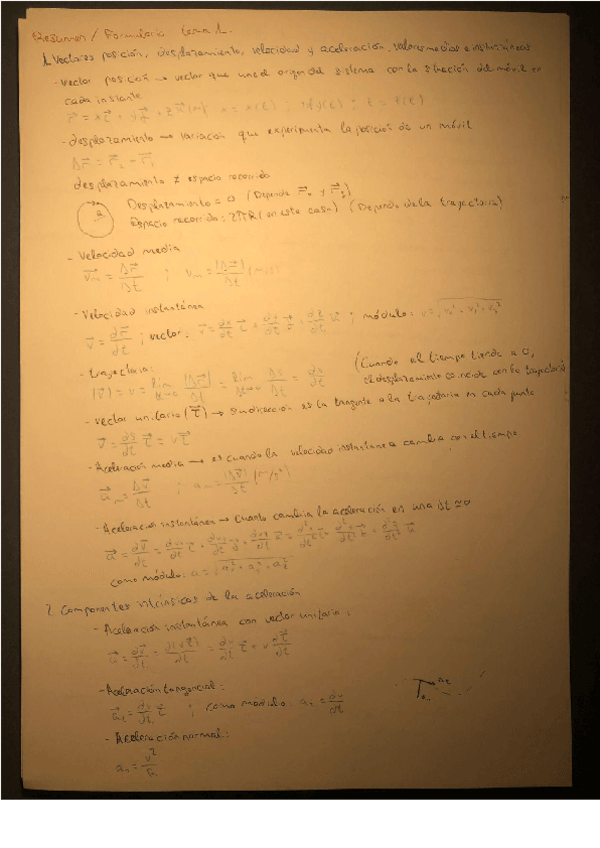 Resumen / Formulario tema 1.
1. Vectores posición, desplazamiento, velocidad y aceleración, valores medios e instantáneos
- Vector posición → vector que une el origen del sistema con la situación del móvil en
cada instante
r⃗ = x i⃗ + y j⃗ + z k⃗ (m) x = x(t) ; y = y(t) ; z = z(t)
- desplazamiento → variación que experimenta la posición de un móvil
Δr⃗ = r⃗₂ - r⃗₁
desplazamiento ≠ espacio recorrido
Desplazamiento = 0 (Depende
Espacio recorrido: 2πR (en este caso) (Depende de la trayectoria)
- Velocidad media
v⃗m = Δr⃗/Δt ; vm = |Δr⃗|/Δt (m/s)
- Velocidad instantánea
v⃗ = dr⃗/dt ; vector: v⃗ = dx/dt i⃗ + dy/dt j⃗ + dz/dt k⃗ ; módulo: v = √(vx² + vy² + vz²)
- trayectoria:
|v⃗| = v = lim |Δr⃗|/Δt = lim Δs/Δt = ds/dt (Cuando el tiempo tiende a 0,
el desplazamiento coincide con la trayectoria)
- Vector unitario (τ⃗) → Su dirección es la tangente a la trayectoria en cada punto
v⃗ = ds/dt τ⃗ = v τ⃗
- Aceleración media → es cuando la velocidad instantanea cambia con el tiempo
a⃗m = Δv⃗/Δt ; am = |Δv⃗|/Δt (m/s²)
- Aceleracion instantánea → Cuanto cambia la aceleración en una Δt ≃ 0
a⃗ = dv⃗/dt = dvx/dt i⃗ + dvy/dt j⃗ + dvz/dt k⃗ = d²x/dt² i⃗ + d²y/dt² j⃗ + d²z/dt² k⃗
como módulo: a = √(ax² + ay² + az²)
2. Componentes intrínsicas de la aceleración
- Aceleración instantánea con vector unitario:
a⃗ = dv⃗/dt = d(v τ⃗)/dt = dv/dt τ⃗ + v dτ⃗/dt
- Aceleración tangencial:
a⃗t = dv/dt τ⃗ ; como módulo: at = dv/dt
- Aceleración normal:
an = v²/R